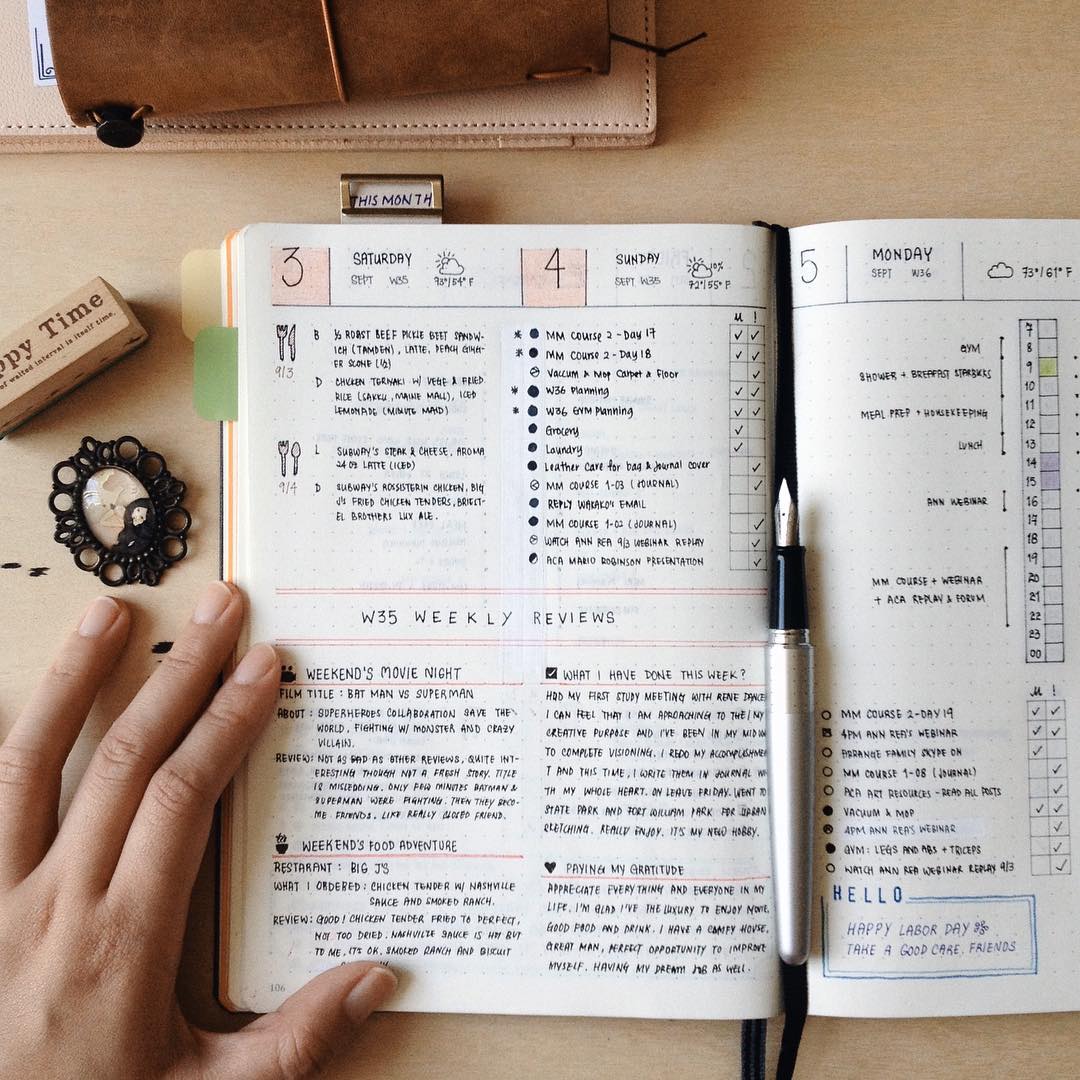 THIS MONTH
ppy Time
of waited interval is itself time.
3
SATURDAY
SEPT W35
93°/54° F
4
SUNDAY
SEPT W35
10%
72°/55° F
9/3
B ½ ROAST BEEF PICKLE BEET SANDW-
ICH (TAMDEN), LATTE, PEACH GING-
ER SCONE (½)
D CHICKEN TERIYAKI W/ VEGE & FRIED
RICE (SAKKU, MAINE MALL), ICED
LEMONADE (MINUTE MAID)
9/4
L SUBWAY'S STEAK & CHEESE, AROMA
24 OZ LATTE (ICED)
D SUBWAY'S ROSSISTERIN CHICKEN, BIG
J'S FRIED CHICKEN TENDERS,
EL BROTHERS LUX ALE.
M !
MM COURSE 2 - DAY 17
MM COURSE 2 - DAY 18
VACCUM & MOP CARPET & FLOOR
W36 PLANNING
W36 GYM PLANNING
GROCERY
LAUNDRY
LEATHER CARE FOR BAG & JOURNAL COVER
MM COURSE 1-03 (JOURNAL)
REPLY WAKAKO'S EMAIL
MM COURSE 1-02 (JOURNAL)
WATCH ANN REA 9/3 WEBINAR REPLAY
ACA MARIO ROBINSON PRESENTATION
W35 WEEKLY REVIEWS
WEEKEND'S MOVIE NIGHT
FILM TITLE : BAT MAN VS SUPERMAN
ABOUT : SUPERHEROES COLLABORATION SAVE THE
WORLD, FIGHTING W/ MONSTER AND CRAZY
VILLAIN.
REVIEW: NOT AS BAD AS OTHER REVIEWS, QUITE INT-
ERESTING THOUGH NOT A FRESH STORY. TITLE
IS MISLEDDING. ONLY FEW MINUTES BATMAN &
SUPERMAN WERE FIGHTING. THEN THEY BECO-
ME FRIENDS. LIKE REALLY CLOSED FRIEND.
WEEKEND'S FOOD ADVENTURE
RESTARANT : BIG J'S
WHAT I ORDERED : CHICKEN TENDER W/ NASHVILLE
SAUCE AND SMOKED RANCH.
REVIEW: GOOD! CHICKEN TENDER FRIED TO PERFECT,
NOT TOO DRIED. NASHVILLE SAUCE IS HOT BUT
TO ME, IT'S OK. SMOKED RANCH AND BISCUIT
106
WHAT I HAVE DONE THIS WEEK?
HAD MY FIRST STUDY MEETING WITH RENE DANCE
I CAN FEEL THAT I AM APROACHING TO THE / MY
CREATIVE PURPOSE AND I'VE BEEN IN MY MIDOW
TO COMPLETE VISIONING. I REDO MY ACCOMPLISHMEN
T AND THIS TIME, I WRITE THEM IN JOURNAL WI
TH MY WHOLE HEART. ON LEAVE FRIDAY. WENT TO
STATE PARK AND FORT WILLIAM PARK FOR URBAN
SKETCHING. REALLY ENJOY. IT'S MY NEW HOBBY.
PAYING MY GRATITUDE
APPRECIATE EVERYTHING AND EVERYONE IN MY
LIFE. I'M GLAD I'VE THE LUXURY TO ENJOY MOVIE,
GOOD FOOD AND DRINK. I HAVE A COMFY HOUSE,
GREAT MAN, PERFECT OPPORTUNITY TO IMPROVE
MYSELF. HAVING MY DREAM JOB AS WELL.
5
MONDAY
SEPT W36
73°/61° F
7
8
9
10
11
12
13
14
15
16
17
18
19
20
21
22
23
00
GYM
SHOWER + BREAKFAST STARBUCKS
MEAL PREP + HOUSEKEEPING
LUNCH
ANN WEBINAR
MM COURSE + WEBINAR
+ ACA REPLAY & FORUM
M !
MM COURSE 2 - DAY 19
4PM ANN REA'S WEBINAR
ARRANGE FAMILY SKYPE ON
MM COURSE 1-08 (JOURNAL)
ACA ART RESOURCES - READ ALL POSTS
VACUUM & MOP
4PM ANN REA'S WEBINAR
GYM: LEGS AND ABS + TRICEPS
WATCH ANN REA WEBINAR REPLAY 9/3
HELLO
HAPPY LABOR DAY
TAKE A GOOD CARE, FRIENDS